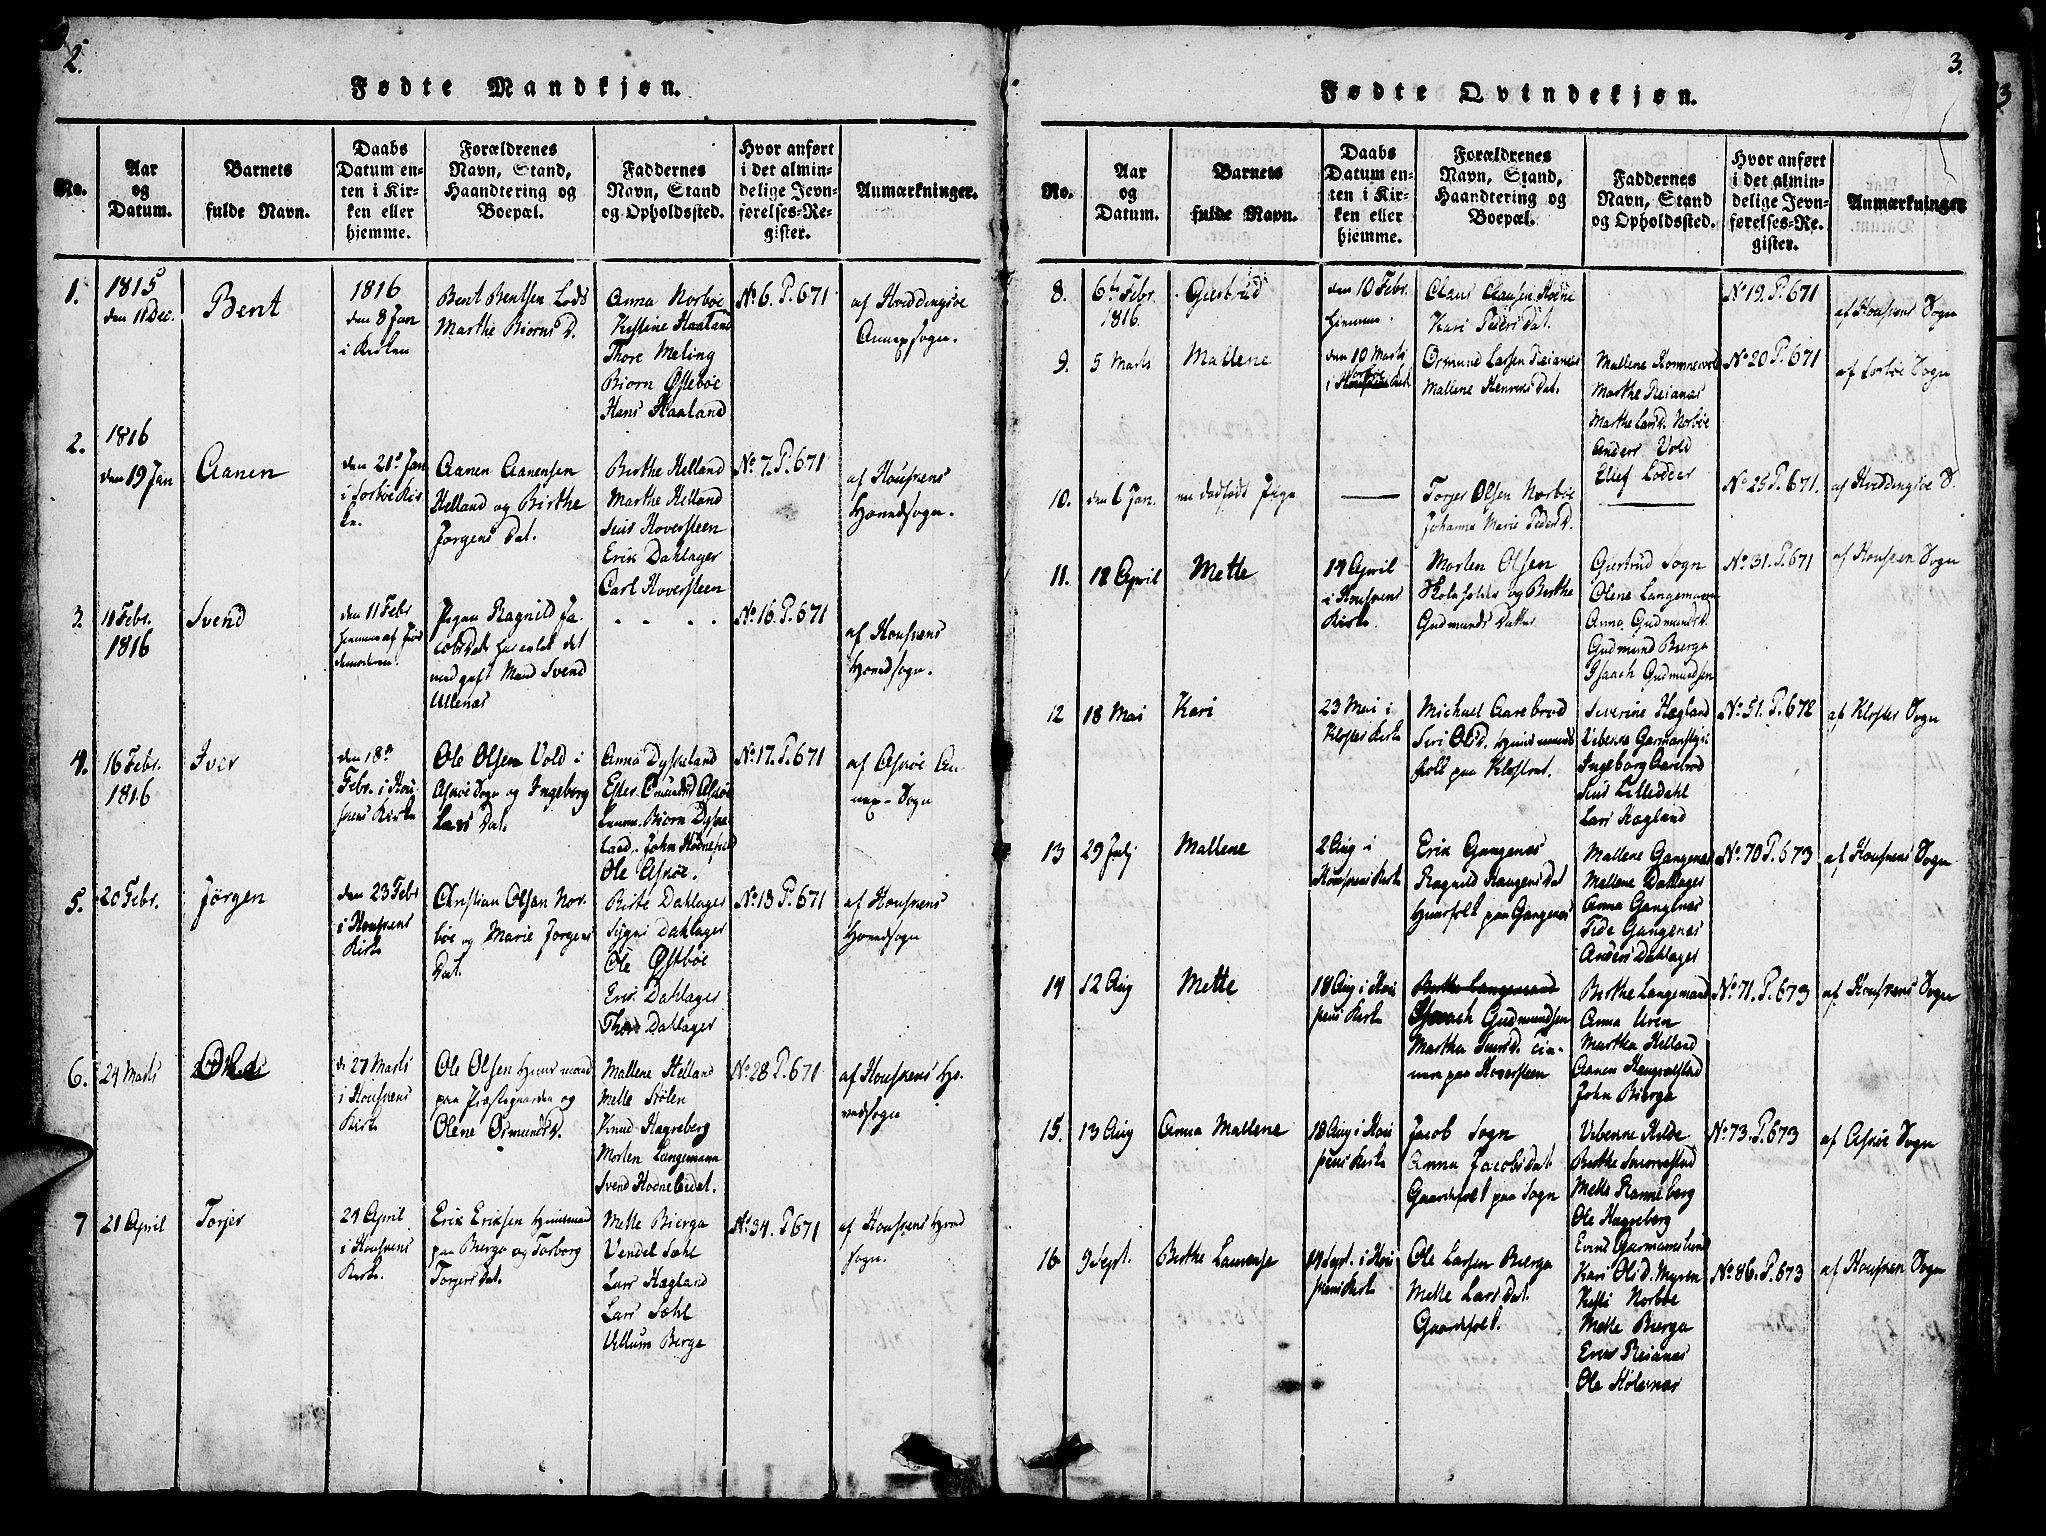 2.
Fødte Mandkjøn.
No.
Aar
og
Datum.
Barnets
fulde Navn.
Daabs
Datum en-
ten i Kir-
ken eller
hjemme.
Forældrenes
Navn, Stand,
Haandtering og
Boepæl.
Faddernes
Navn, Stand
og Opholdssted.
Hvor anført
i det almin-
delige Jevn-
førelses-Re-
gister.
Anmærkninger.
1.
1815
den 11 Dec.
Bent
1816
den 8 Jan
i Kirken
Bent Bentsen Lods
Marthe Biorns D.
Anna Norbøe
Kistine Haaland
Thore Meling
Biorn Østebøe
Hans Haaland
No. 6. P. 671
af Hviddingsøe
Annexsogn.
2.
1816
den 19 Jan
Aanen
den 21de Jan
i Torbøe Kir-
ke.
Aanen Aanensen
Helland og Birthe
Jorgens Dat.
Birthe Helland
Marthe Helland
Siur Hoversteen
Erik Dahlager
Carl Hoversteen
No. 7. P. 671
af Housnens
Hovedsogn.
3.
11 Febr.
1816
Svend
den 11 Febr
hiemme af Jor
demoderen.
Pigen Ragnild Ja-
cobsDat. har avlet det
med gift Mand Svend
Ullenas
No. 16. P. 671
af Housnens
Hovedsogn.
4.
16 Febr.
1816
Iver
den 18de
Febr. i Hou-
snens Kirke
Ole Olsen Vold i
Askøe Sogn og Ingeborg
Lars Dat.
Anna Dyseland
Ester Omunds D Askøe
Biorn Dyse
land. John Hodnefield
Ole Askøe.
No. 17. P. 671
af Askøe An-
nex-Sogn
5.
20 Febr.
Jörgen
den 23 Febr
i Housnens
Kirke
Christian Olsen Nor-
bøe og Marie Jorgens
Dat.
Birte Dahlager
Sygni Dahlager
Ole Østbøe
Eric Dahlager
Thore Dahlager
No. 18 P. 671
af Housnens
Hovedsogn
6.
24 Marts
d. 27 Marts
i Housnens
Kirke
Ole Olsen Huusmand
paa Præstegaarden og
Olene Osmunds D.
Mallene Helland
Mette Hölen
Knud Hagreberg
Morten Langemann
Svend Hodnefieldet.
No. 28 P. 671
af Housnens Ho-
vedsogn
7
21 April
Torjer
24 April
i Housnens
Kirke.
Erik Eriksen Huusmand
paa Bierga og Torborg
Torjers Dat.
Mette Bierga
Vendel Sæhl
Lars Hægland
Lars Sæhl
Villum Berge
No. 34. P 671
af Housnens Hoved
sogn.
3.
Fødte Qvindekjøn.
No.
Aar
og
Datum.
Barnets
fulde Navn.
Daabs
Datum en-
ten i Kir-
ken eller
hjemme.
Forældrenes
Navn, Stand,
Haandtering og
Boepæl.
Faddernes
Navn, Stand
og Opholdssted.
Hvor anført
i det almin-
delige Jevn-
førelses-Re-
gister.
Anmærkninger
8.
6te Febr.
1816.
Giertrud
den 10 Febr.
hiemme.
Claus Clausen Hodne
Kari Peders Dat.
No. 19. P. 671
af Housnens Sogn
9.
5 Marts
Mallene
den 10 Marts
Torbøe
i Housnens Kirk
Ormund Larsen Reianæs
Mallene Henrics Dat.
Mallene Hommevold
Marthe Reianæs
Marthe Lars D. Norbøe
Anders Vold
Elief Lodder
No. 20 P. 671
af Torbøe Sogn
10.
den 6 Jan.
en dødfødt Pige
Torjer Olsen Norbøe
Johanne Marie Peders D.
No. 25 P. 671.
af Hviddingsøe S.
11.
12 April
Mette
14 April
i Housnens
Kirke.
Morten Olsen
Skoleholder og Birthe
Gudmunds Datter
Giertrud Sogn
Olene Langemann
Anna Gudmunds D.
Gudmund Bierga
Isaach Gudmundsen
No. 31. P. 671
af Housnen Sogn
12
18 Mai
Kari
23 Mai i
Kloster Kirke
Michael Aarebrod
Siri Ols D. Huusmands
folk paa Klostret.
Severine Hægland
Vibenne Garmanslun
Ingeborg Aarebrod
Siur Lilledahl
Lars Hægland
No. 51. P. 672
af Kloster Sogn
13
29 July
Mallene
2 Aug i
Housnens Kirke
Erik Gangenæs
Ragnild Haagens Dat
Huusfolk paa Gangenæs
Mallene Gangenæs
Mallene Dahlager
Anna Gangenæs
Tide Gangenæs
Anders Dahlager
No. 70 P. 673
af Housnens Sogn
14
12 Aug
Mette
18 Aug i Hou
snens Kirke
Birthe Langemand
Isaach Gudmundsen
Martha Siurs D. ein-
nere paa Hoversteen
Birthe Langemand
Anna Uren
Martha Helland
Aanen Haugvalstad
John Bierga
No. 71. P. 673
af Housnens Sogn
15.
13 Aug
Anna Mallene
18 Aug i Hou
snens Kirke
Jacob Sogn
Anna Jacobs Dat.
Gaardfolk paa Sogn
Vibenne Helde
Birthe Smorvestad
Mette Ranneberg
Ole Hagreberg
Evind Garmanslund
No. 73. P. 673
af Askøe Sogn
16
9 Sept.
Birthe Laurense
14 Sept. i Hou
snens Kirke
Ole Larsen Bierga
Mette Lars Dat.
Gaardfolk.
Kari Ols D. Myren
Kisti Norbøe
Mette Bierga
Eric Reianæs
Ole Holenæs
No. 86. P. 673
af Housnen Sogn